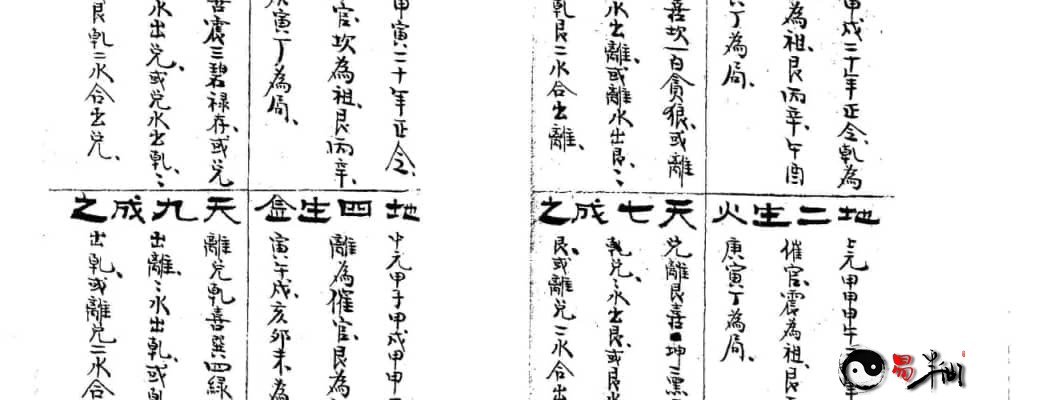 甲戌二十年正令、乾為
為祖、艮丙辛、午酉
寅丁為局、
喜坎一白貪狼、或離
水出離、或離水出艮、〻
乾艮二水合出離、
地二生火天七成之
上元甲申甲午
催官、震為祖、艮
庚寅丁為局、
兌離艮喜坤二黑
乾兌、〻水出艮、或艮
艮、或離兌二水合出
甲寅二十年正令、
官、坎為祖、艮丙辛、
庚寅丁為局、
喜震三碧禄存、或兌
水出兌、或兌水出乾、〻
艮乾二水合出兌、
地四生金天九成之
中元甲子甲戌甲申
離為催官、艮為
寅午戌、亥卯未為
離兌乾喜巽四緑
出離、〻水出乾、或乾
出乾、或離兌二水合
易半仙